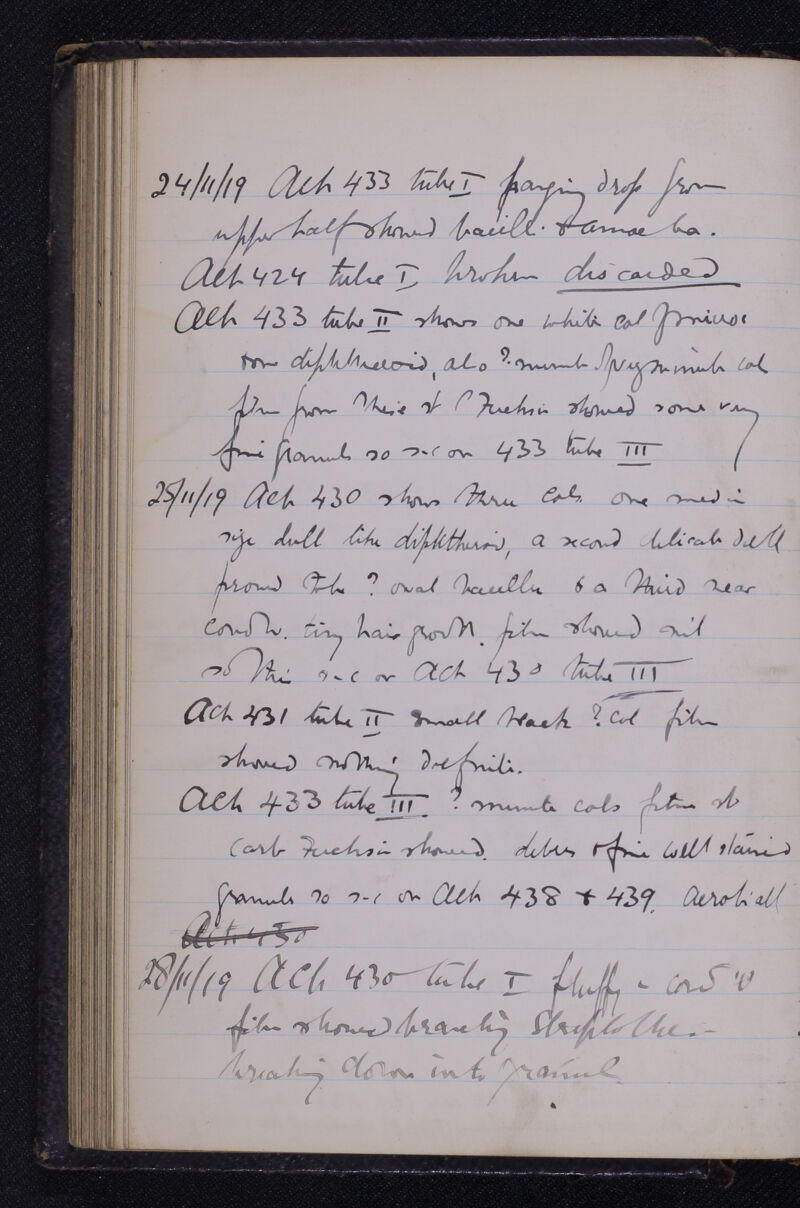 24/11/19 Ach 433 tube I hanging drop from
upper half showed bacilli & amoeba.
Ach 424 tube I broken discarded
Ach 433 tube II shows one white col
diphtheroid, also ? minute col
film from these st C Fuchsin showed some very
fine granules so s-c on 433 tube III
25/11/19 Ach 430 shows three cols one med
size dull like diphtheroid, a second delicate dull
? oval bacillus & a third near
condw. tiny hair growth. film showed nil
so this s-c on Ach 430 tube III
Ach 431 tube II small black ? col film
showed nothing definite.
Ach 433 tube III. ? minute cols film st
Carb Fuchsin showed debris & fine well stained
granules so s-c on Ach 438 & 439.
Ach 430
28/11/19 Ach 430 tube I fluffy
film showed branching
breaking down into granules